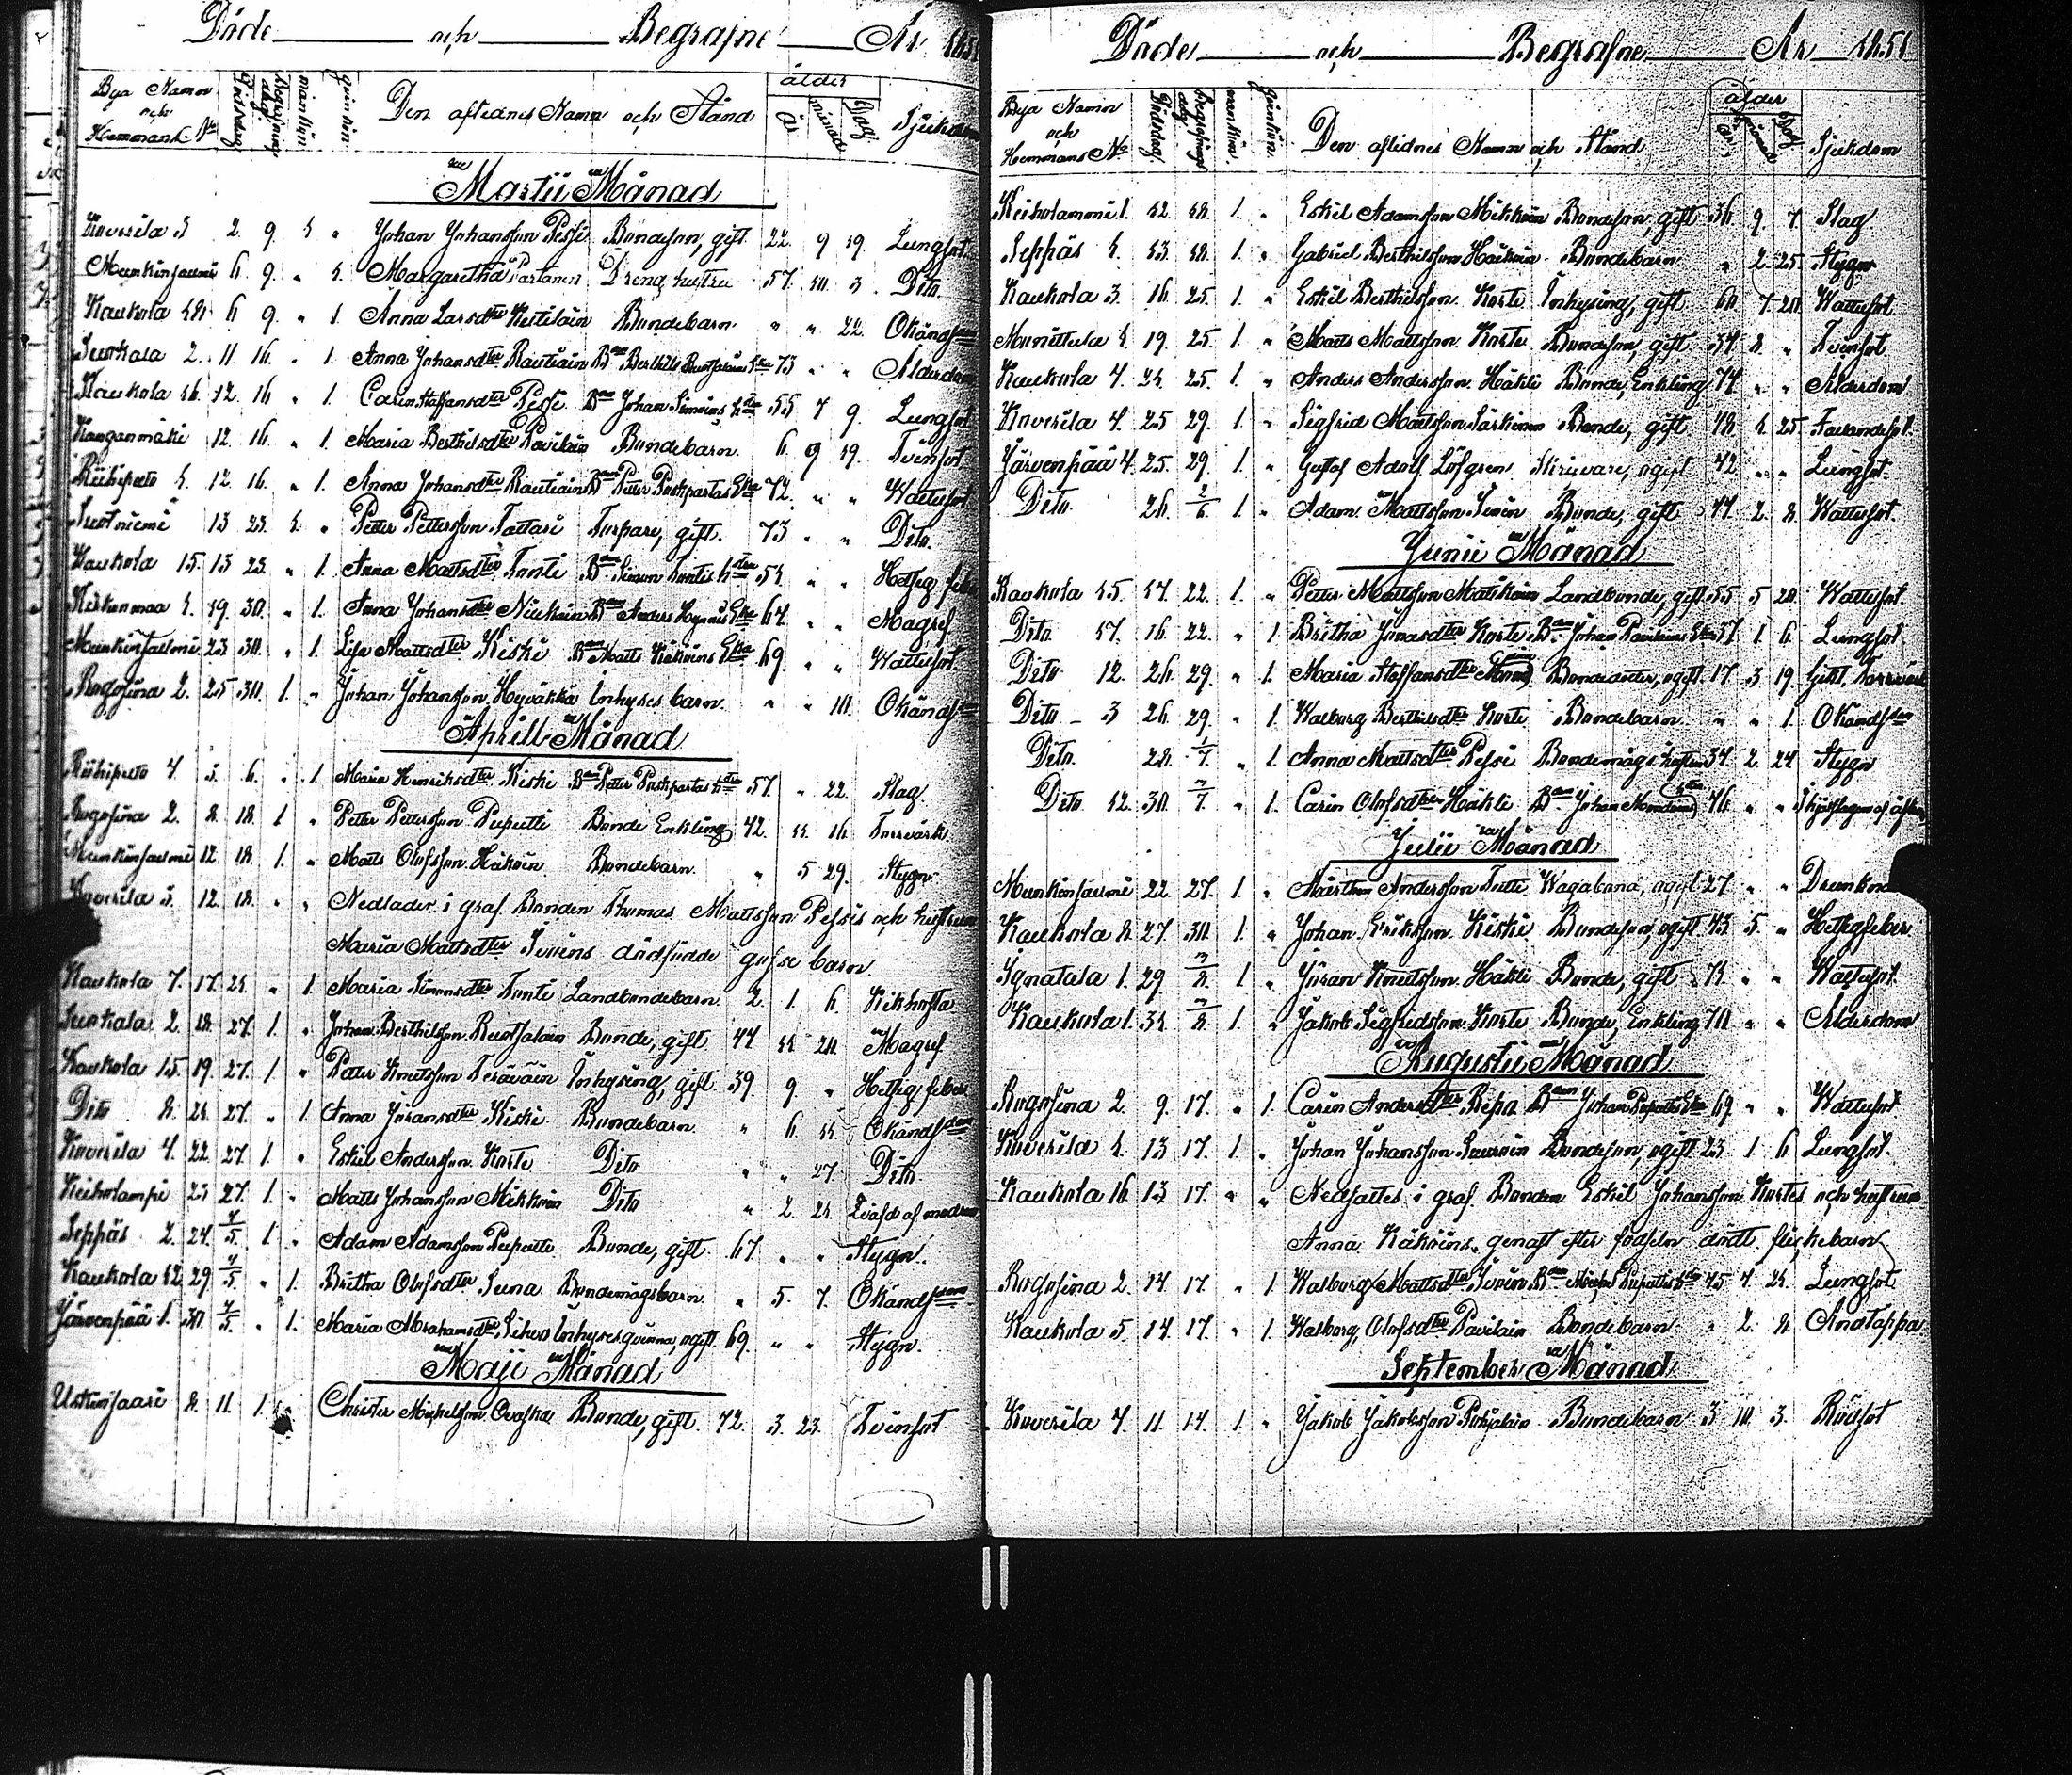 Döde och Begrafne År 1851
Bya Namn och Hemmans No Dödsdag begrafnings dag mankön qvinkön Den aflidnes Namn och Stånd ålder År månad Dag Sjukdom
Martii Månad
Koverila 3 2. 9. 1. " Johan Johansson Pessi Bondeson, gift 22. 9 19. Lungsot.
Munkinsalmi 6 9. " 1. Margaretha Partanen Dreng hustru 57. 10. 3. Dito.
Kaukola 18 6 9. " 1. Anna Larsdter Bondebarn " " 22. Okänd
Suokala 2. 11. 16. " 1. Anna Johansdter Rautiain Bden Berthil Ruotsalains Eka 73 " " Ålderdom
Kaukola 16 12. 16 " 1. Carin Staffansdter Pessi Bden Johan Simoins h:stru 55 7 9. Lungsot
Kanganmäki 12. 16. " 1. Maria Berthilsdter Pavilain Bondebarn. 6 9 19. Tvinsot
Riihipelto 1. 12 16. " 1. Anna Johansdter Rautiain Bden Petter Puhpartas Eka 72. " " Wattusot
13 23. 1. " Petter Pettersson Tattari Torpare, gift. 73 " " Dito.
Kaukola 15. 13 23. " 1. Anna Mattsdter Tonti Bden Simon Tontis h:stru 51 " " Hetsig feber
Kiskonmaa 1. 19. 30. " 1. Anna Johansdter Niukain Bden Anders Eka 64 " " Magref
Munkinsalmi 23 30. " 1. Lisa Mattsdter Kiski Bden Matts Käköins Eka 69 " " Wattusot.
Rogosina 2. 25 30. 1. " Johan Johansson Hyväkkä Inhyses barn. " " 10. Okänd
Aprill Månad
Riihipelto 4. 3. 6. " 1. Maria Henriksdter Kiski Bden Petter Puhpartas h:stru 57. " 22. Slag.
Rogosina 2. 8. 18. 1 " Petter Pettersson Puputti Bonde Enkling 42. 11. 16. Torrvärk
Munkinsalmi 12. 18. 1. " Matts Olofsson Häköin Bondebarn. " 5 29. Stygn
Koverila 3. 12. 18. " " Nedlades i graf Bonden Thomas Mattsson Pessis och hustrus
Maria Mattsdter Simins dödfödde gosse barn.
Kaukola 7. 17. 21. " 1. Maria Simonsdter Tonti Landbondebarn 2. 1. 6. Kikhosta
Suokala 2. 18. 27. 1. " Johan Berthilsson Ruotsalain Bonde, gift. 44 11 20. Magref
Kaukola 15. 19. 27. 1 " Petter Knutsson Teräväin Inhysing, gift. 39 9 " Hetsig feber
Dito 8. 21. 27. " 1. Anna Jöransdter Kiski Bondebarn " 6. 11. Okänd
Koverila 4. 22. 27. 1. " Eskil Andersson Korte Dito " " 27. Dito
23 27. 1. " Matts Johansson Mikkoin Dito " 2. 21.
Seppäs 2. 24. 4/5. 1 " Adam Adamsson Puputti Bonde, gift. 67. " " Stygn.
Kaukola 12. 29 4/5. " 1. Britha Olofsdter Suna Bondemågsbarn " 5. 7. Okänd
Järvenpää 1. 30. 4/5. " 1. Maria Abrahamsdter Inhysesqvinna, ogift. 69. " " Stygn.
Maji Månad
8. 11. 1. " Christer Michelsson Ovaska Bonde, gift. 72. 3. 23. Tvinsot
Döde och Begrafne År 1851
Bya Namn och Hemmans No Dödsdag begrafnings dag mankön. qvinkön. Den aflidnes Namn och Stånd ålder År månad Dag Sjukdom
1. 12. 18. 1. " Eskil Adamsson Mikkoin Bondeson, gift 36 9. 7. Slag
Seppäs 1. 13. 18. 1. " Gabriel Berthilsson Häköin Bondebarn " 2. 25. Stygn
Kaukola 3. 16 25. 1. " Eskil Berthilsson Korte Inhysing, gift 60 7. 20. Wattusot
1. 19. 25. 1. " Matts Mattsson Korte Bondeson, gift 34 8. " Tvinsot
Kaukola 4. 21. 25. 1. " Anders Andersson Häkli Bonde, Enkling 74 " " Ålderdom
Koverila 4. 25 29. 1. " Sigfrid Mattsson Särkinen Bonde, gift 48. 1. 25. Fallandesot.
Järvenpää 4. 25. 29. 1. " Gustof Adolf Löfgren Skrifvare, ogift 42 " " Lungsot.
Dito 26 2/6 1. " Adam Mattsson Simin Bonde, gift 44 2. 8. Wattusot.
Junii Månad
Kaukola 15. 14. 22. 1. " Petter Mattsson Matikain Landbonde, gift 55 5 20. Wattusot.
Dito 17. 16 22. " 1. Britha Jonasdter Korte Bden Johan Pavilains Eka 57. 1 6. Lungsot
Dito 12. 26 29. " 1. Maria Staffansdter Bondedotter, ogift 17. 3 19. Gikt, Torrvärk
Dito 3 26. 29. " 1. Walborg Berthilsdter Korte Bondebarn " " 1. Okänd
Dito. 28. 1/7. " 1. Anna Mattsdter Pessi Bondemågs hustru 34. 2. 24 Stygn
Dito 12. 30. 7/7. " 1. Carin Olofsdter Häkli Bden Johan 76 " " Ihjälslagen af åskan
Julii Månad
Munkinsalmi 22. 27. 1. " Andersson Tutti Wagabond, ogift 27 " "
Kaukola 8. 27. 30. 1. " Johan Eriksson Kiski Bondeson, ogift 43 5. " Hetsigfeber
Ignatala 1. 29 3/8. 1. " Jöran Knutsson Häkli Bonde, gift 71. " " Wattusot.
Kaukola 1. 31. 3/8. 1. " Jakob Sigfridsson Korte Bonde, Enkling 70. " " Ålderdom
Augustii Månad
Rogosina 2. 9. 17. " 1. Carin Andersdter Repo Bden Johan Puputtis Eka 69. " " Wattusot
Koverila 1. 13 17. 1. " Johan Johansson Bondeson, ogift 23 1. 6 Lungsot.
Kaukola 16 13 17. " " Nedsattes i graf Bonden Eskil Johansson Kortes och hustrus
Anna Käköins genast efter födseln dödt flickebarn
Rogosina 2. 14 17. " 1 Walborg Mattsdter Simin Bden Michel Puputtis h:stru 45 4. 21. Lungsot
Kaukola 5. 14. 17. " 1. Walborg Olofsdter Pavilain Bondebarn " 2. 8. Andtäppa
September Månad
Koverila 4. 11. 14. 1. " Jakob Jakobsson Pohjalain Bondebarn 3 10. 3. Rödsot